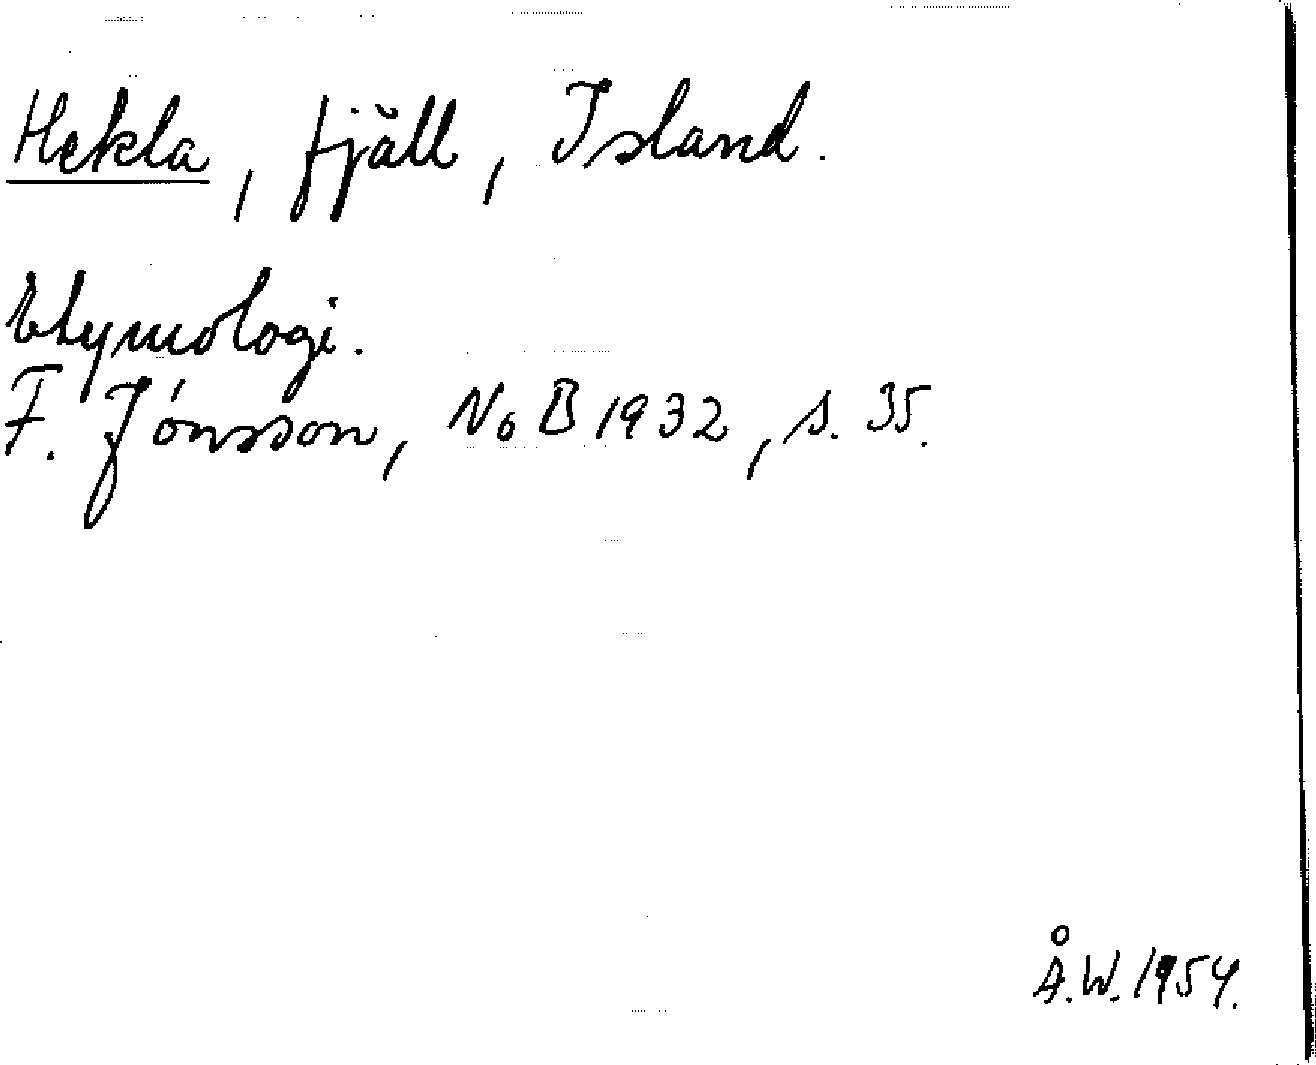 Hekla, fjäll, Island.
Etymologi.
F. Jónsson, NoB 1932, s. 35.
Å.W. 1954.